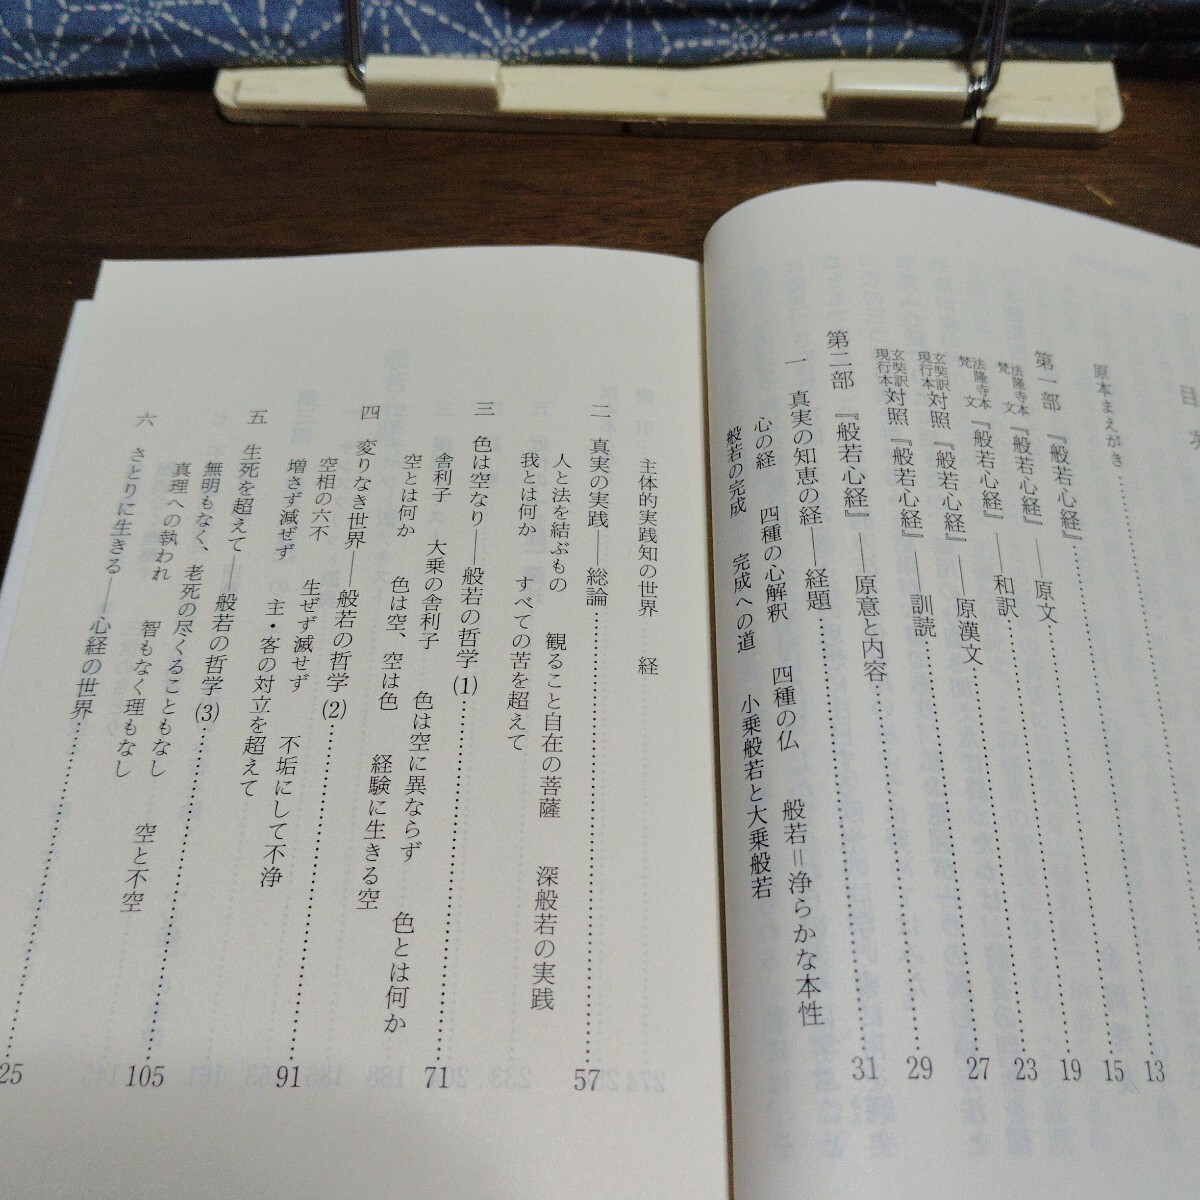 目次
原本まえがき……13
第一部 『般若心経』……15
法隆寺本梵文『般若心経』——原文……19
法隆寺本梵文『般若心経』——和訳……23
玄奘訳現行本対照『般若心経』——原漢文……27
玄奘訳現行本対照『般若心経』——訓読……29
第二部 『般若心経』——原意と内容……31
一 真実の知恵の経——経題
心の経 四種の心解釈 四種の仏 般若＝浄らかな本性
般若の完成 完成への道 小乗般若と大乗般若
主体的実践知の世界 経
二 真実の実践——総論……57
人と法を結ぶもの 観ること自在の菩薩 深般若の実践
我とは何か すべての苦を超えて
三 色は空なり——般若の哲学(1)……71
舎利子 大乗の舎利子 色は空に異ならず 色とは何か
空とは何か 色は空、空は色 経験に生きる空
四 変りなき世界——般若の哲学(2)……91
空相の六不 生ぜず滅せず 不垢にして不浄
増さず減ぜず 主・客の対立を超えて
五 生死を超えて——般若の哲学(3)……105
無明もなく、老死の尽くることもなし 空と不空
真理への執われ 智もなく理もなし
六 さとりに生きる——心経の世界……25